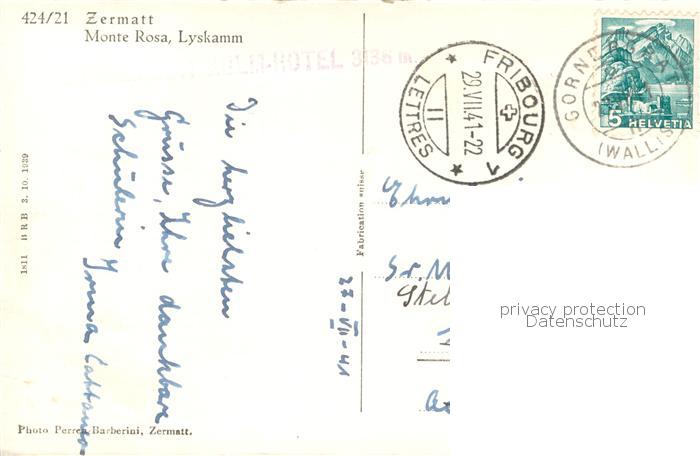 424/21 Zermatt
Monte Rosa, Lyskamm
KULM-HOTEL 3136 m
FRIBOURG 1
LETTRES
29.VII.41-22
II
GORNERGRAT
(WALLIS)
5 HELVETIA
Die herzlichsten
Grüsse, Ihre dankbare
Schülerin Irma
27-VII-41
1811 BRB 3. 10. 1939
Fabrication suisse
privacy protection
Datenschutz
Photo Perren-Barberini, Zermatt.